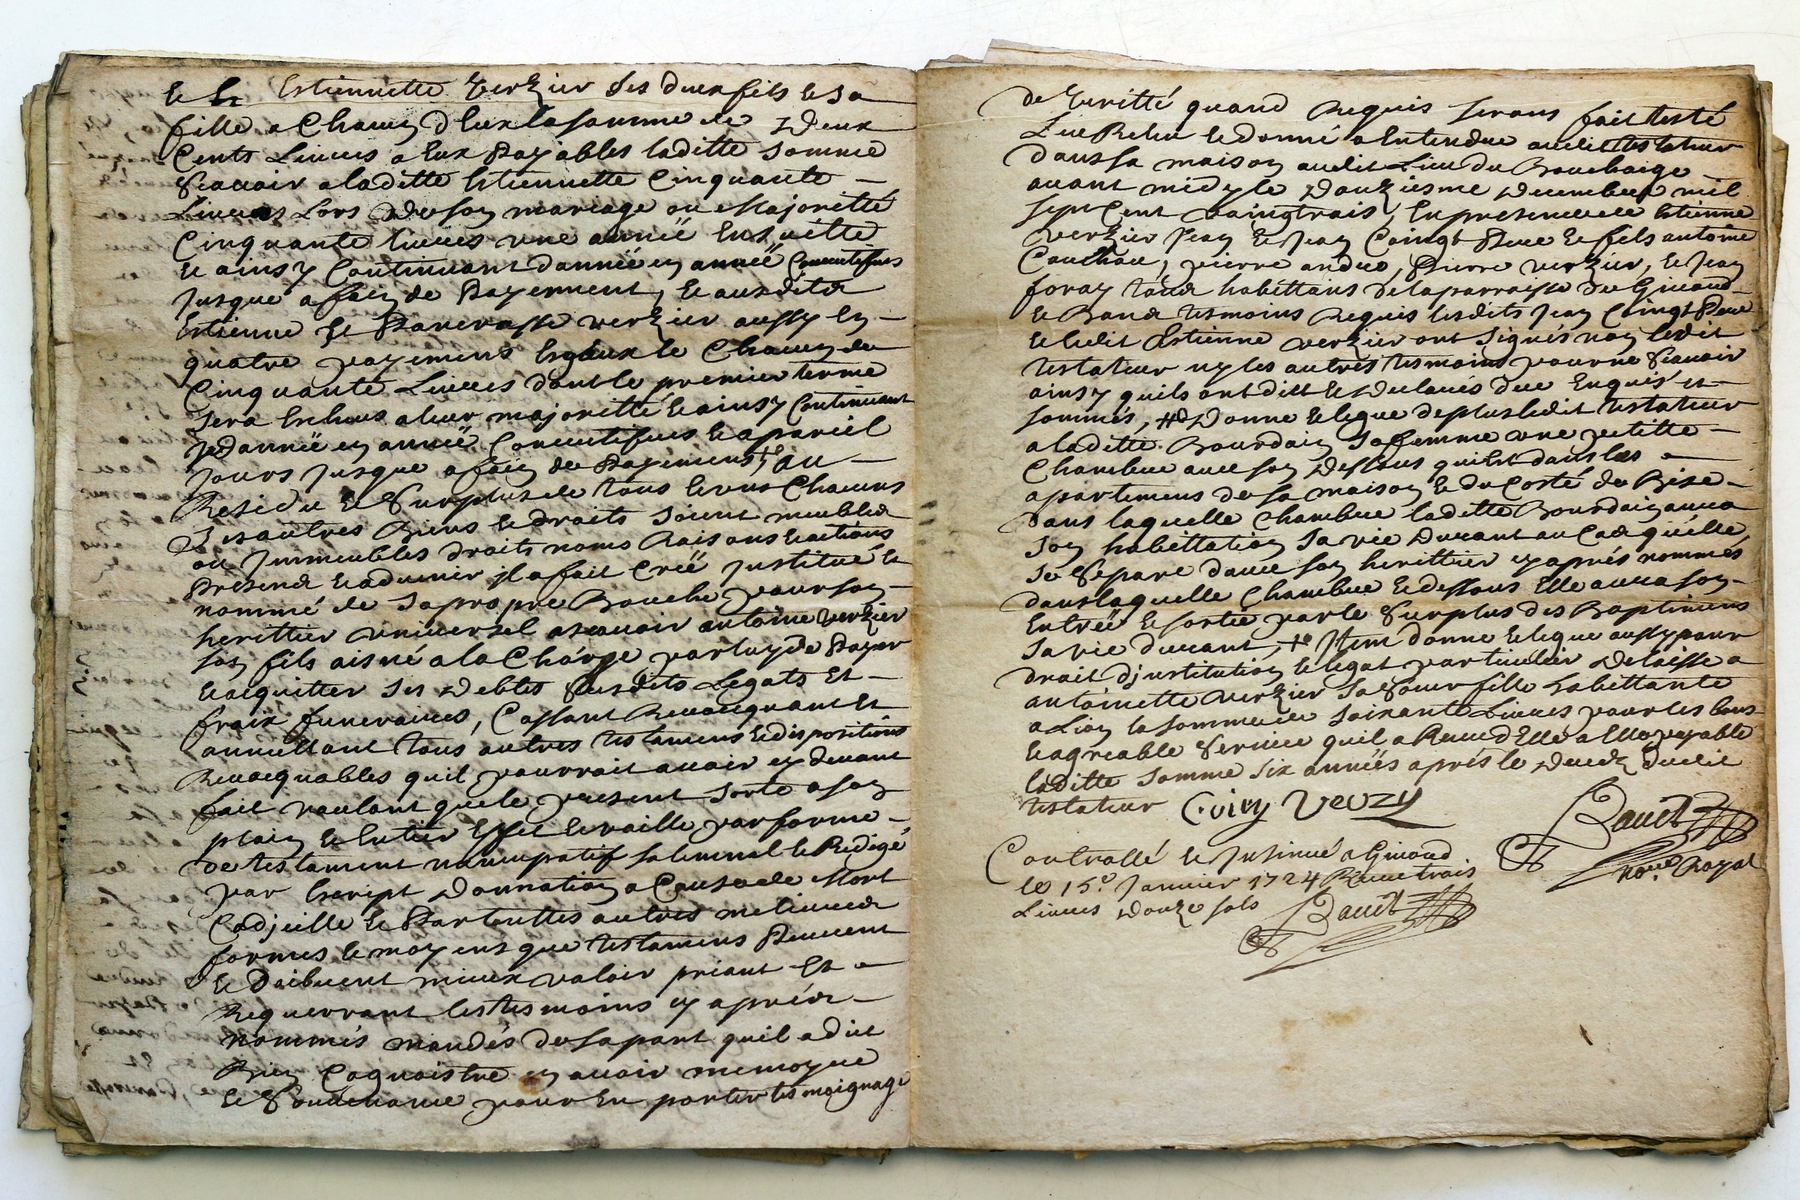 et Estiennette Verzier ses deux fils et sa
fille a Chacun d'Eux la somme de Deux
Cents Livres a Eux Payables laditte somme
Scauoir a laditte Estiennette Cinquante
Liures Lors de son mariage ou Majoritté
Cinquante liures une année Ensuitte
et ainsy Continuant d'année en année Consecutifues
Jusque a fain de Payement, et ausdits
Estienne et Pancrasse verzier aussy En
quatre payemens Esgaux de Chacun de
Cinquante Liures dont le premier terme
sera Escheus a leur majoritté et ainsy Continuant
d'année en année Consecutifues et a pareil
Jours Jusque a fain de Payemens, au
Residu et Surplus de tous et uns Chacuns
ses autres Biens et droits soient meubles
ou Jmmeubles droits noms Raisons et actions
Presens et aduenir jl a fait Creé Justitué et
nommé de sa propre Bouche pour son
herittier universel a scauoir antoine verzier
son fils aisné a la Charge par luy de Payer
et acquitter ses debtes susdits Legats Et
fraix funeraires, Cassant Reuocquant Et
annullant tous autres testamens et dispositions
Reuocquables quil pourroit auoir cy deuant
fait voulant que le present sorte a son
plain et Entier Effet et vaille par forme
de testament nuncupatif solemnel et Redigé
par Escript Donnation a Cause de Mort
Codjcille et Par touttes autres meilleures
formes et moyens que testamens Peuuent
et doibuent mieux valoir priant Et
Requerrant les tesmoins cy aprés
nommés mandés de sa part quil a dit
Bien Cognoistre en auoir memoyre
et Souuenance pour En porter tesmoignage
de veritté quand Requis serons fait testé
Leu Releu et donné a Entendre audit testateur
dans sa maison audit Lieu du Bouchaige
auant midy le Douziesme Decembre mil
sept Cent vaingtrois, En presence de Estienne
verzier Jean et Jean Coingt Pere et fils antoine
Couchou, pierre andro, Pierre verzier, et Jean
foray tous habittans de la parroisse de Girond
et Rand tesmoins Requis lesdits Jean Coingt Pere
et ledit Estienne verzier ont signés non ledit
testateur ny les autres tesmoins pour ne Scauoir
ainsy quils ont ditt et declarés de ce Enquis et
sommés, Donne et legue de plus ledit testateur
a laditte Bourdain sa femme une petitte
Chambre auec son dessous qui Est dans les
apartemens de sa maison et du Costé de Bise
dans laquelle Chambre laditte Bourdain aura
son habittation sa vie Durant au Cas quelle
se Separe dauec son herittier cy aprés nommés
dans laquelle Chambre et dessous Elle aura son
Entrée et sortie par le Surplus des Baptimens
sa vie durant, Jtem donne et legue aussy pour
droit d'justitution et legat particulier Delaisse a
antoinette verzier sa Sœur fille habittante
a Lion la somme de soixante Liures pour les bons
et agreable Seruice quil a Receu d'Elle a Elle payable
laditte somme six années aprés le decez dudit
testateur Coing Verzy
Bauet
nore. Royal
Controllé et Jnsinué a Girond
le 15e. Januier 1724 Receu trois
Liures Douze sols Bauet